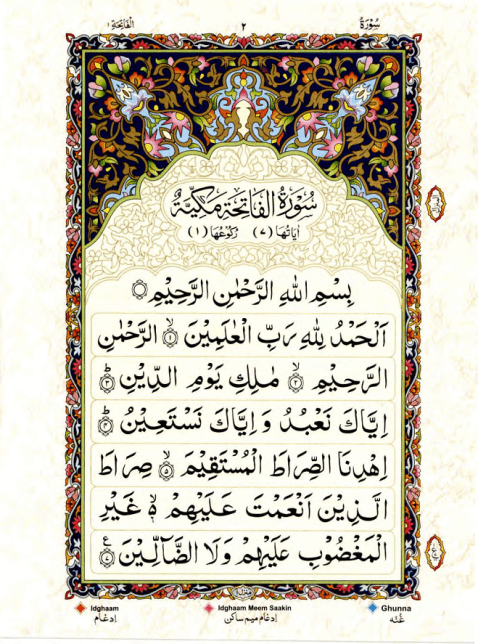 سُوْرَةُ ٢ اَلْفَاتِحَة ١
سُوْرَةُ الْفَاتِحَةِ مَكِّيَّةٌ
اٰيَاتُهَا (٧) رُكُوْعُهَا (١)
بِسْمِ اللّٰهِ الرَّحْمٰنِ الرَّحِيْمِ ۝
اَلْحَمْدُ لِلّٰهِ رَبِّ الْعٰلَمِيْنَ ۙ﴿١﴾ الرَّحْمٰنِ
الرَّحِيْمِ ۙ﴿٢﴾ مٰلِكِ يَوْمِ الدِّيْنِ ؕ﴿٣﴾
اِيَّاكَ نَعْبُدُ وَ اِيَّاكَ نَسْتَعِيْنُ ؕ﴿٤﴾
اِهْدِنَا الصِّرَاطَ الْمُسْتَقِيْمَ ۙ﴿٥﴾ صِرَاطَ
الَّذِيْنَ اَنْعَمْتَ عَلَيْهِمْ ۙ۬ غَيْرِ
الْمَغْضُوْبِ عَلَيْهِمْ وَلَا الضَّآلِّيْنَ ﴿٧﴾ ع
Idghaam Idghaam Meem Saakin Ghunna
اِدغَام اِدغَام میم ساکن غُنّه